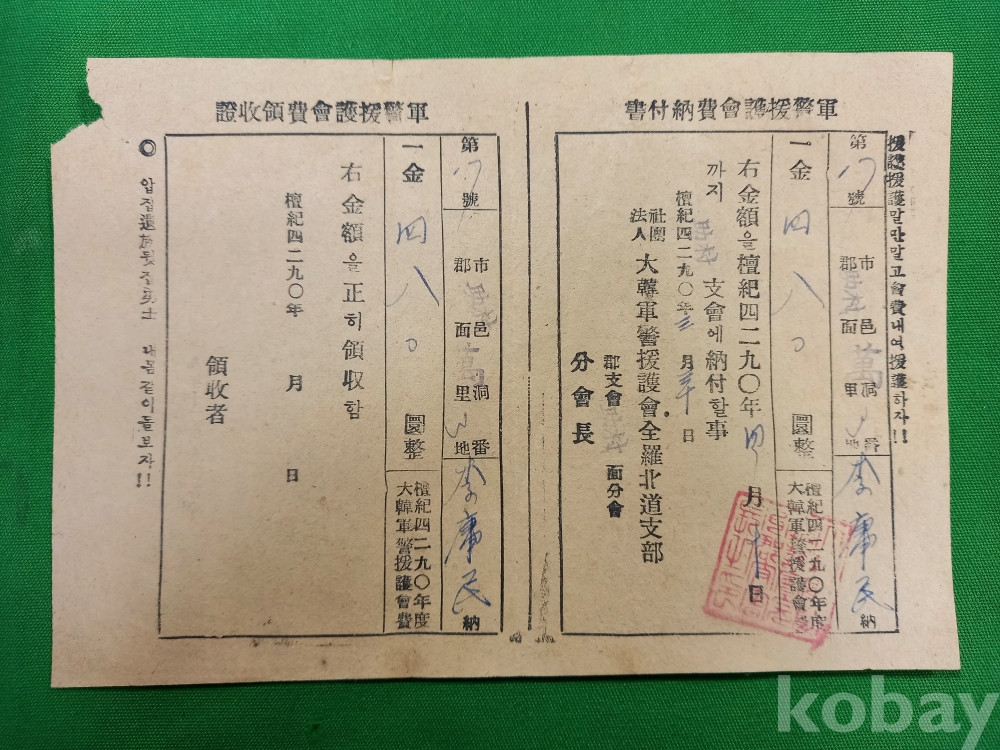 軍警援護會費納付書
援護援護말만말고會費내여援護하자!!
第 八 號
市 郡
邑 面 萬
洞 里
番地
李康民 納
一金 四八〇 圜整
檀紀四二九〇年度
大韓軍警援護會費
右金額을檀紀四二九〇年 四 月 十 日
까지 支會에納付할事
檀紀四二九〇年 三 月 三十 日
社團
法人 大韓軍警援護會全羅北道支部
郡支會 面分會
分會長
軍警援護會費領收證
第 八 號
市 郡
邑 面 萬
洞 里
番地
李康民 納
一金 四八〇 圜整
檀紀四二九〇年度
大韓軍警援護會費
右金額을正히領収함
檀紀四二九〇年 月 日
領收者
◎ 압집遺族뒷집勇士 내몸같이돌보자!!
kobay